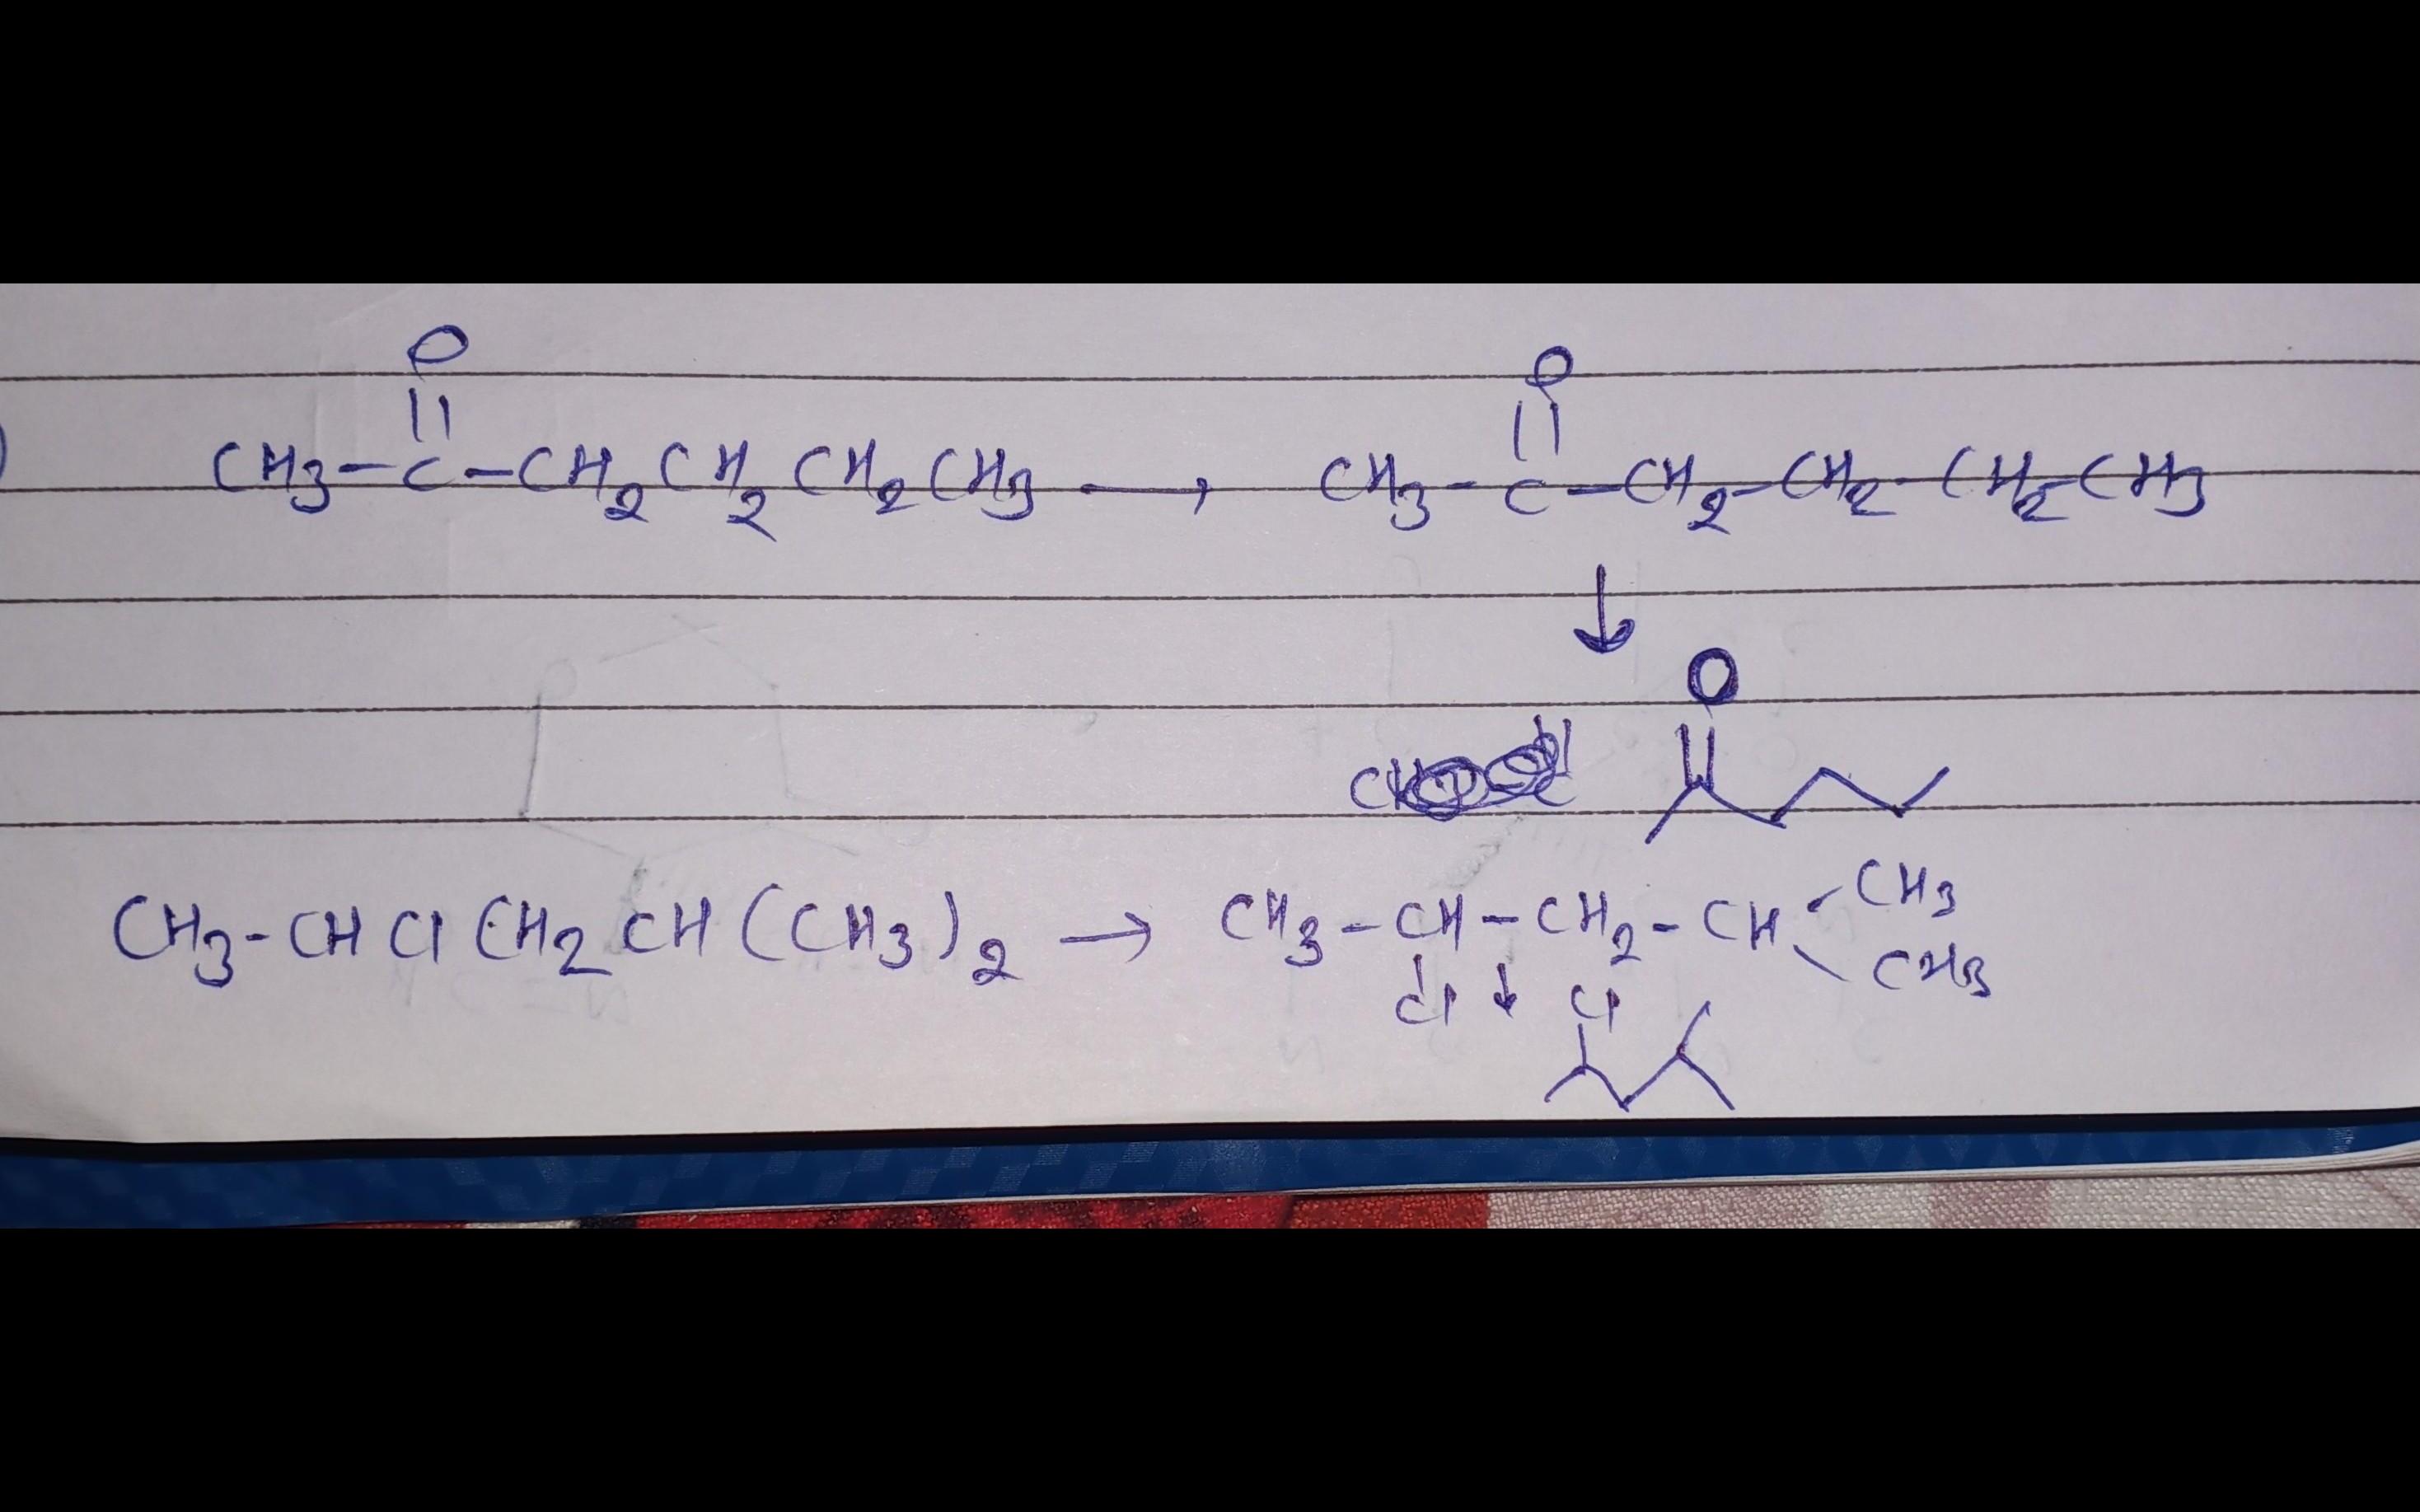 O O
|| ||
CH3-C-CH2CH2CH2CH3 → CH3-C-CH2-CH2-CH2-CH3
↓
O
CH3-CHClCH2CH(CH3)2 → CH3-CH-CH2-CH CH3
CH3
Cl ↓ Cl